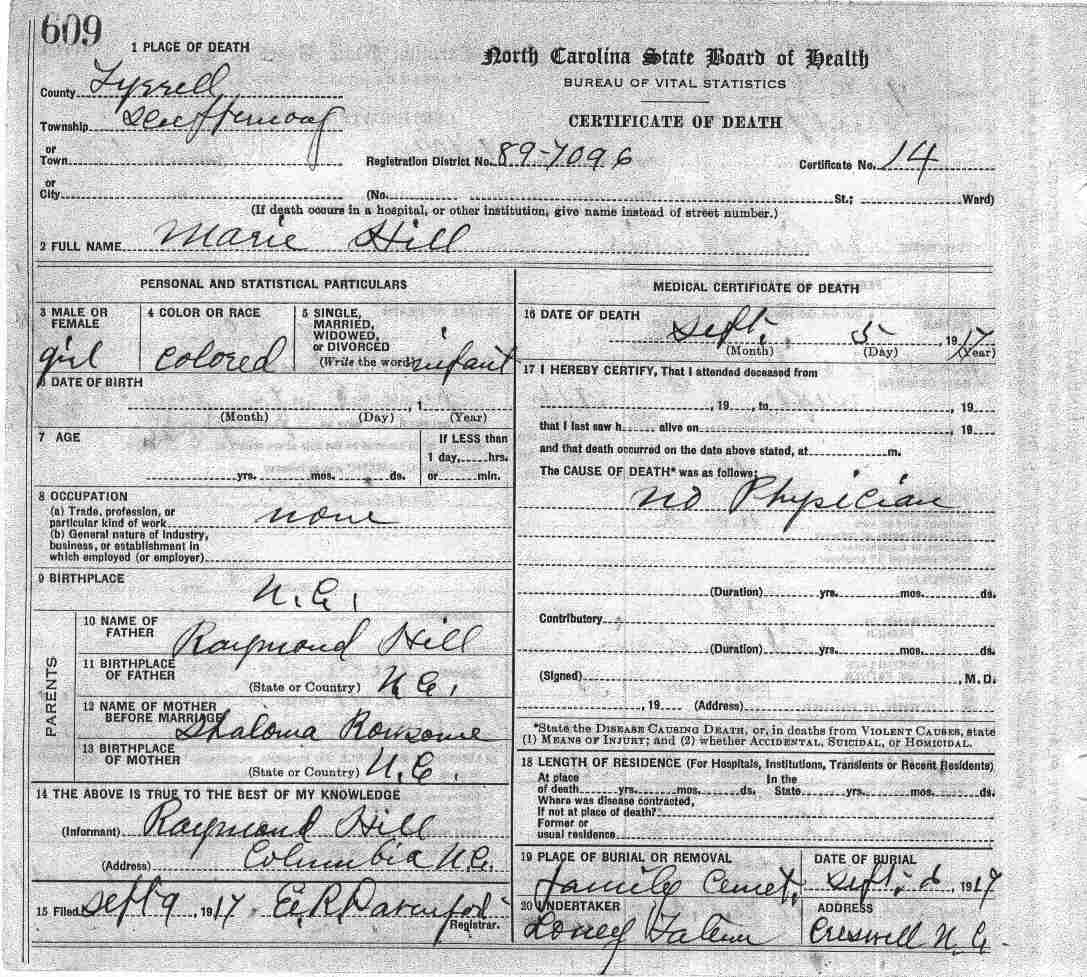 609
1 PLACE OF DEATH
North Carolina State Board of Health
BUREAU OF VITAL STATISTICS
CERTIFICATE OF DEATH
County Tyrrell
Township
or
Town Registration District No. 89-7096 Certificate No. 14
or
City (No. St.; Ward)
(If death occurs in a hospital, or other institution, give name instead of street number.)
2 FULL NAME Marie Hill
PERSONAL AND STATISTICAL PARTICULARS
3 MALE OR FEMALE girl
4 COLOR OR RACE colored
5 SINGLE,
MARRIED,
WIDOWED,
or DIVORCED
(Write the word) infant
6 DATE OF BIRTH
, 1
(Month) (Day) (Year)
7 AGE
yrs. mos. ds.
If LESS than
1 day, hrs.
or min.
8 OCCUPATION
(a) Trade, profession, or
particular kind of work none
(b) General nature of industry,
business, or establishment in
which employed (or employer)
9 BIRTHPLACE
N.C.
PARENTS
10 NAME OF
FATHER Raymond Hill
11 BIRTHPLACE
OF FATHER
(State or Country) N.C.
12 NAME OF MOTHER
BEFORE MARRIAGE
13 BIRTHPLACE
OF MOTHER
(State or Country) N.C.
14 THE ABOVE IS TRUE TO THE BEST OF MY KNOWLEDGE
(Informant) Raymond Hill
(Address) Columbia N.C.
15 Filed Sept 9, 1917 E.R. Davenport
Registrar.
MEDICAL CERTIFICATE OF DEATH
16 DATE OF DEATH
Sept. 5, 1917
(Month) (Day) (Year)
17 I HEREBY CERTIFY, That I attended deceased from
, 19 , to , 19
that I last saw h alive on , 19
and that death occurred on the date above stated, at m.
The CAUSE OF DEATH* was as follows:
no Physician
(Duration) yrs. mos. ds.
Contributory
(Duration) yrs. mos. ds.
(Signed) , M.D.
, 19 (Address)
*State the DISEASE CAUSING DEATH, or, in deaths from VIOLENT CAUSES, state
(1) MEANS OF INJURY; and (2) whether ACCIDENTAL, SUICIDAL, or HOMICIDAL.
18 LENGTH OF RESIDENCE (For Hospitals, Institutions, Transients or Recent Residents)
At place In the
of death yrs. mos. ds. State yrs. mos. ds.
Where was disease contracted,
If not at place of death?
Former or
usual residence
19 PLACE OF BURIAL OR REMOVAL
Family Cemet.
DATE OF BURIAL
Sept. 6, 1917
20 UNDERTAKER
ADDRESS
Creswell N.C.